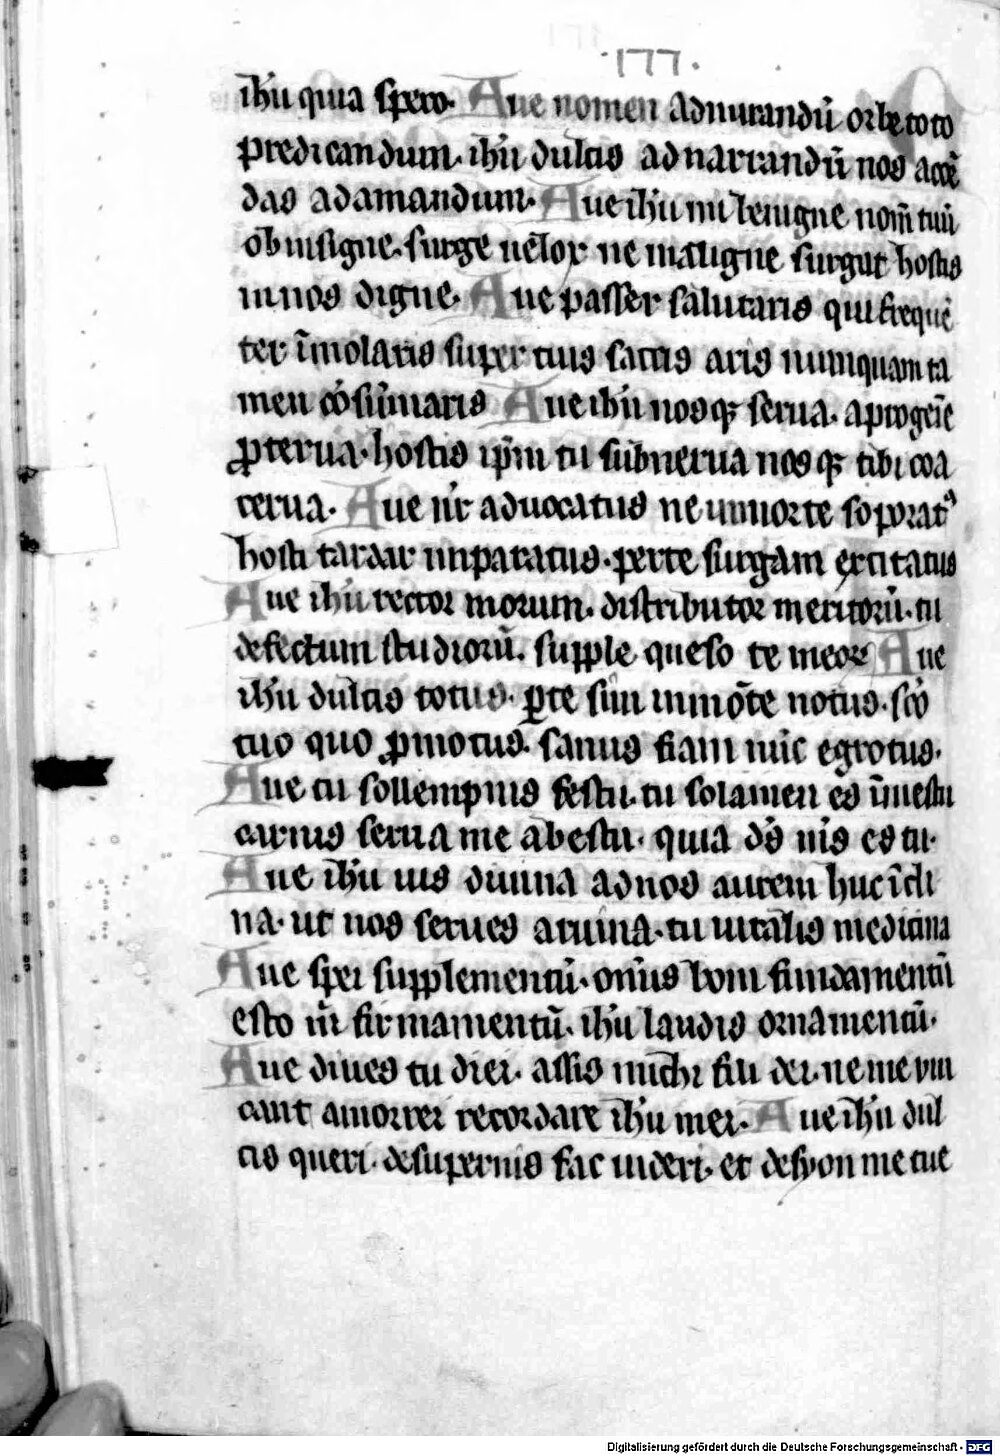 ·177·
ihū quia spero. Aue nomen admirandū orbe toto
predicandum. ihū dulcis ad narrandū nos accē
das adamandum. Aue ihū mi benigne nom̄ tuū
ob insigne. surge uelox ne maligne surgat hostis
in nos digne. Aue passer salutaris qui frequē
ter īmolaris super tuis sacris aris numquam ta
men cōsūmaris Aue ihū nosqꝫ serua. a progeīe
ꝓterua. hostis ip̄m tu subnerua nosqꝫ tibi coa
cerua. Aue nr̄ aduocatus ne in morte soporatꝰ
hosti tradar inparatus. per te surgam excitatus
Aue ihū rector morum. distributor meritorū. tu
defectum studiorū. supple queso te meoꝝ Aue
ihū dulcis totus. ꝑ te sim in mōte notus. scō
tuo quo ꝓmotus. sanus fiam nūc egrotus.
Aue tu sollempnis festu. tu solamen es īmestu
carnis serua me ab estu. quia ds̄ nis es tu.
Aue ihū uis diuina ad nos aurem huc īcli
na. ut nos serues a ruina. tu uitalis medicina
Aue spei supplementū. om̄is boni fundamentū
esto m̄ firmamentū. ihū laudis ornamentū.
Aue diues tu diei. assis michi fili dei. ne me vin
cant amorrei recordare ihū mei. Aue ihū dul
cis queri. de supernis fac uideri. et de syon me tue
Digitalisierung gefördert durch die Deutsche Forschungsgemeinschaft - DFG